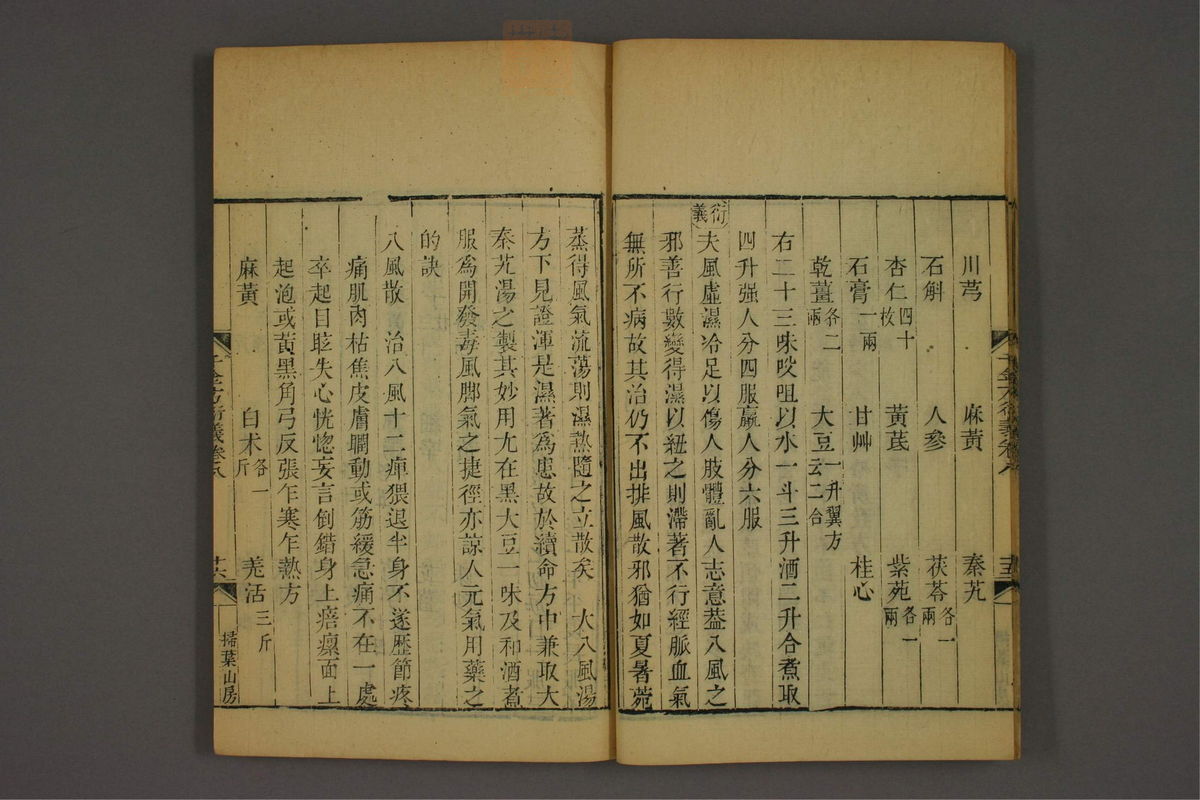 川芎　麻黃　秦艽
石斛　人參　茯苓各一兩
杏仁四十枚　黃芪　紫菀各一兩
石膏一兩　甘艸　桂心
乾薑各二兩　大豆一升翼方云二合
右二十三味㕮咀以水一斗三升酒二升合煮取
四升强人分四服羸人分六服
衍義
夫風虛濕冷足以傷人肢體亂人志意葢八風之
邪善行數變得濕以紐之則滯著不行經脈血氣
無所不病故其治仍不出排風散邪猶如夏暑菀
蒸得風氣流蕩則濕熱隨之立散矣　大八風湯
方下見證渾是濕著為患故於續命方中兼取大
秦艽湯之製其妙用尤在黑大豆一味及和酒煮
服為開發毒風脚氣之捷徑亦諒人元氣用藥之
的訣
八風散　治八風十二痹猥退半身不遂歷節疼
痛肌肉枯焦皮膚瞤動或筋緩急痛不在一處
卒起目眩失心恍惚妄言倒錯身上瘖㾦面上
起泡或黃黑角弓反張乍寒乍熱方
麻黃　白朮各一斤　羌活三斤
千金方衍義卷八
廿六
掃葉山房